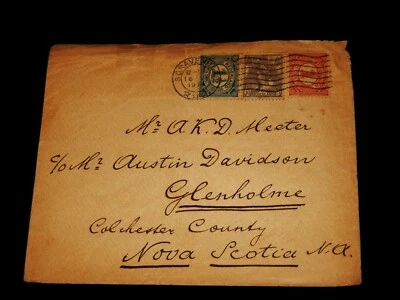 S GRAVE
Mr A.K.D. Meeter
c/o Mr Austin Davidson
Glenholme
Colchester County
Nova Scotia N.A.